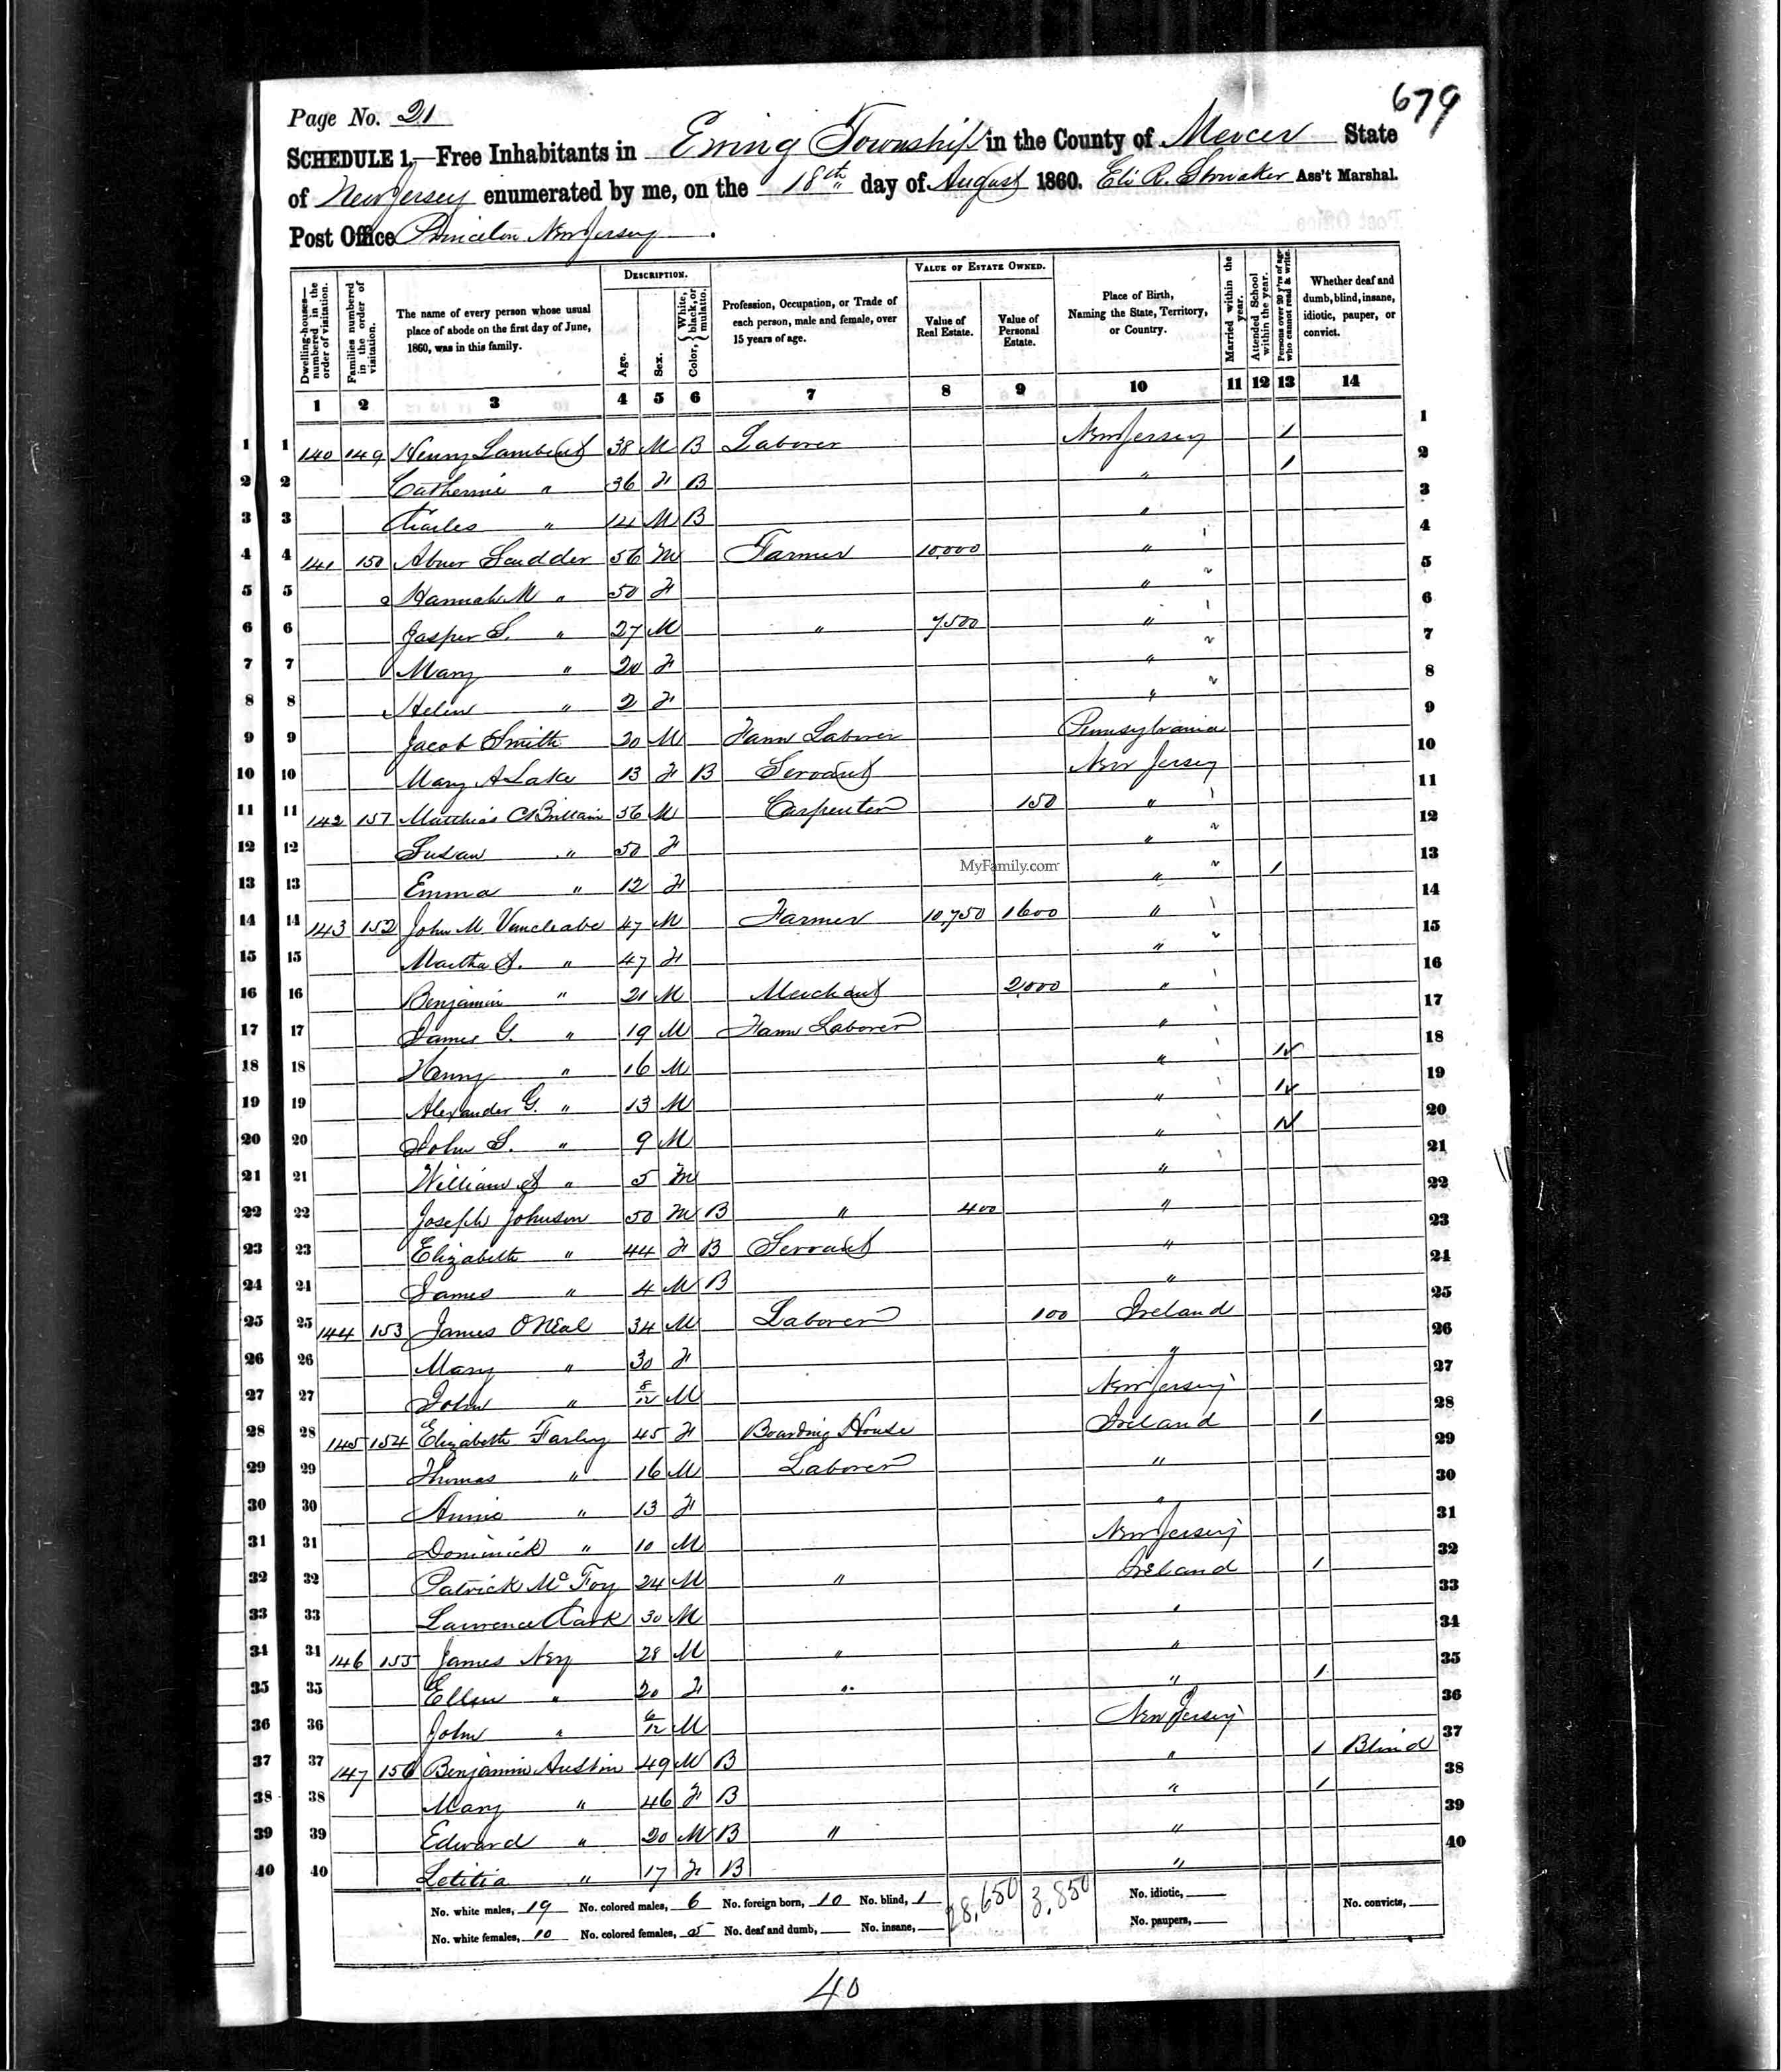 679
Page No. 21
SCHEDULE 1.—Free Inhabitants in Ewing Township in the County of Mercer State
of New Jersey enumerated by me, on the 18th day of August 1860. Eli R. Ass't Marshal.
Post Office Princeton New Jersey.
Dwelling-houses—numbered in the order of visitation.
Families numbered in the order of visitation.
The name of every person whose usual place of abode on the first day of June, 1860, was in this family.
DESCRIPTION.
Age.
Sex.
Color, { White, black, or mulatto.
Profession, Occupation, or Trade of each person, male and female, over 15 years of age.
VALUE OF ESTATE OWNED.
Value of Real Estate.
Value of Personal Estate.
Place of Birth, Naming the State, Territory, or Country.
Married within the year.
Attended School within the year.
Persons over 20 y'rs of age who cannot read & write.
Whether deaf and dumb, blind, insane, idiotic, pauper, or convict.
1 2 3 4 5 6 7 8 9 10 11 12 13 14
1 1 140 149 Henry Lambert 38 M B Laborer New Jersey 1 1
2 2 Catherine " 36 F B " 1 2
3 3 Charles " 14 M B " 3
4 4 141 150 Abner Scudder 56 M Farmer 10,000 " 4
5 5 Hannah M " 50 F " 5
6 6 Jasper S. " 27 M " 7,500 " 6
7 7 Mary " 20 F " 7
8 8 Helen " 2 F " 8
9 9 Jacob Smith 20 M Farm Laborer Pennsylvania 9
10 10 Mary A Lake 13 F B Servant New Jersey 10
11 11 142 151 Matthias C Brittain 56 M Carpenter 150 " 11
12 12 Susan " 50 F " 12
MyFamily.com
13 13 Emma " 12 F " 1 13
14 14 143 152 John M Vancleave 47 M Farmer 10,750 1600 " 14
15 15 Martha S. " 47 F " 15
16 16 Benjamin " 21 M Merchant 2,000 " 16
17 17 James G. " 19 M Farm Laborer " 17
18 18 Henry " 16 M " 1 18
19 19 Alexander G. " 13 M " 1 19
20 20 John S. " 9 M " 1 20
21 21 William S " 5 M " 21
22 22 Joseph Johnson 50 M B " 400 " 22
23 23 Elizabeth " 44 F B Servant " 23
24 24 James " 4 M B " 24
25 25 144 153 James O Neal 34 M Laborer 100 Ireland 25
26 26 Mary " 30 F " 26
27 27 John " 8/12 M New Jersey 27
28 28 145 154 Elizabeth Farley 45 F Boarding House Ireland 1 28
29 29 Thomas " 16 M Laborer " 29
30 30 Annie " 13 F " 30
31 31 Dominick " 10 M New Jersey 31
32 32 Patrick Mc Foy 24 M " Ireland 1 32
33 33 Lawrence Clark 30 M " 33
34 34 146 155 James Ney 28 M " " 34
35 35 Ellen " 20 F " " 1 35
36 36 John " 6/12 M New Jersey 36
37 37 147 156 Benjamin Austin 49 M B " 1 Blind 37
38 38 Mary " 46 F B " 1 38
39 39 Edward " 20 M B " " 39
40 40 Letitia " 17 F B " 40
No. white males, 19 No. colored males, 6 No. foreign born, 10 No. blind, 1 28,650 3,850 No. idiotic, No. convicts,
No. white females, 10 No. colored females, 5 No. deaf and dumb, No. insane, No. paupers,
40